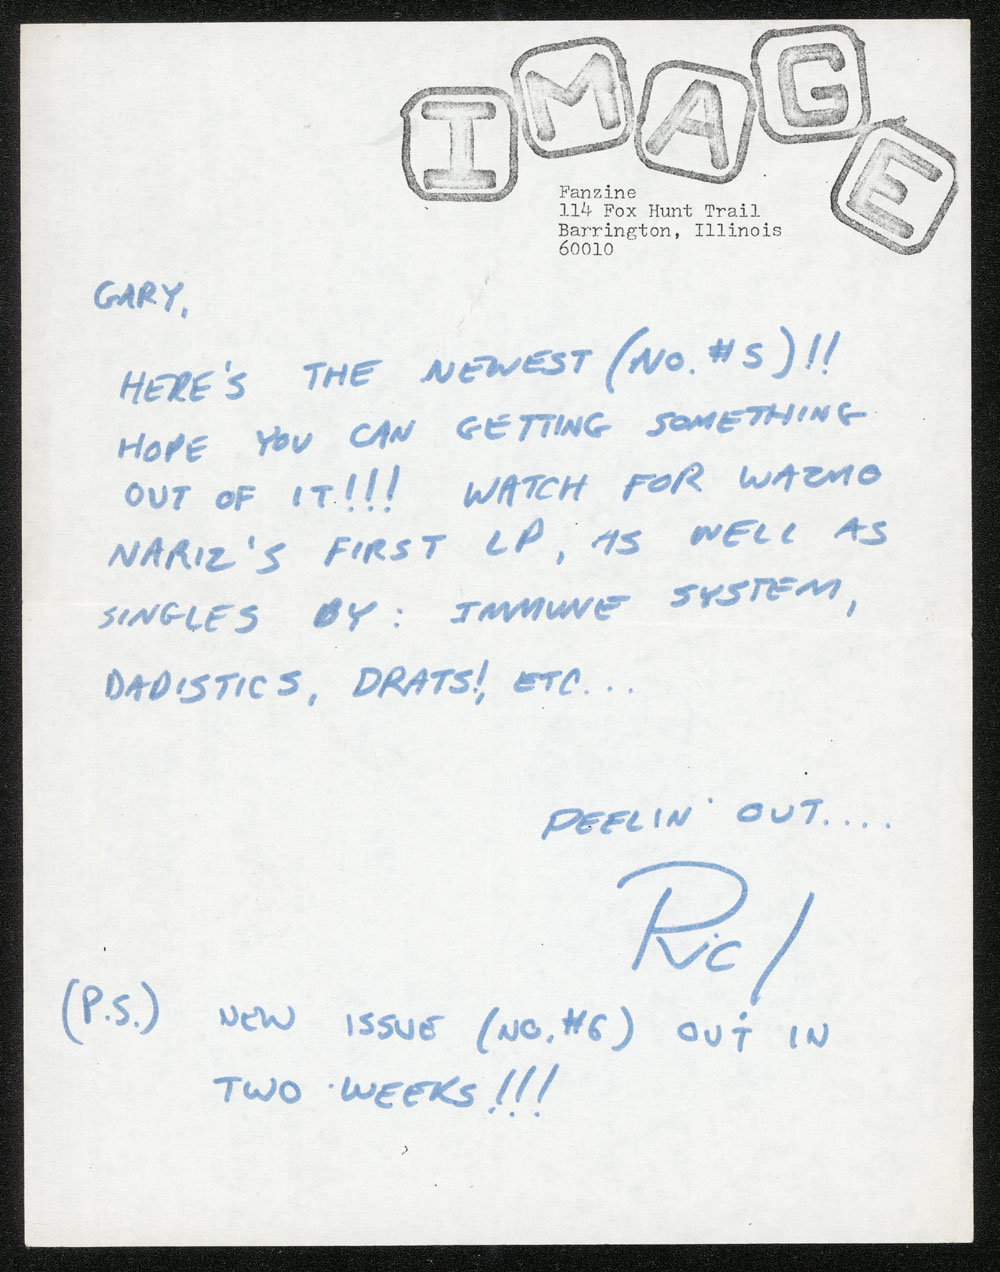 IMAGE
Fanzine
114 Fox Hunt Trail
Barrington, Illinois
60010
GARY,
HERE'S THE NEWEST (NO. #5)!!
HOPE YOU CAN GETTING SOMETHING
OUT OF IT!!! WATCH FOR WAZMO
NARIZ'S FIRST LP, AS WELL AS
SINGLES BY: IMMUNE SYSTEM,
DADISTICS, DRATS!, ETC...
PEELIN' OUT....
Ric!
(P.S.) NEW ISSUE (NO. #6) OUT IN
TWO WEEKS!!!